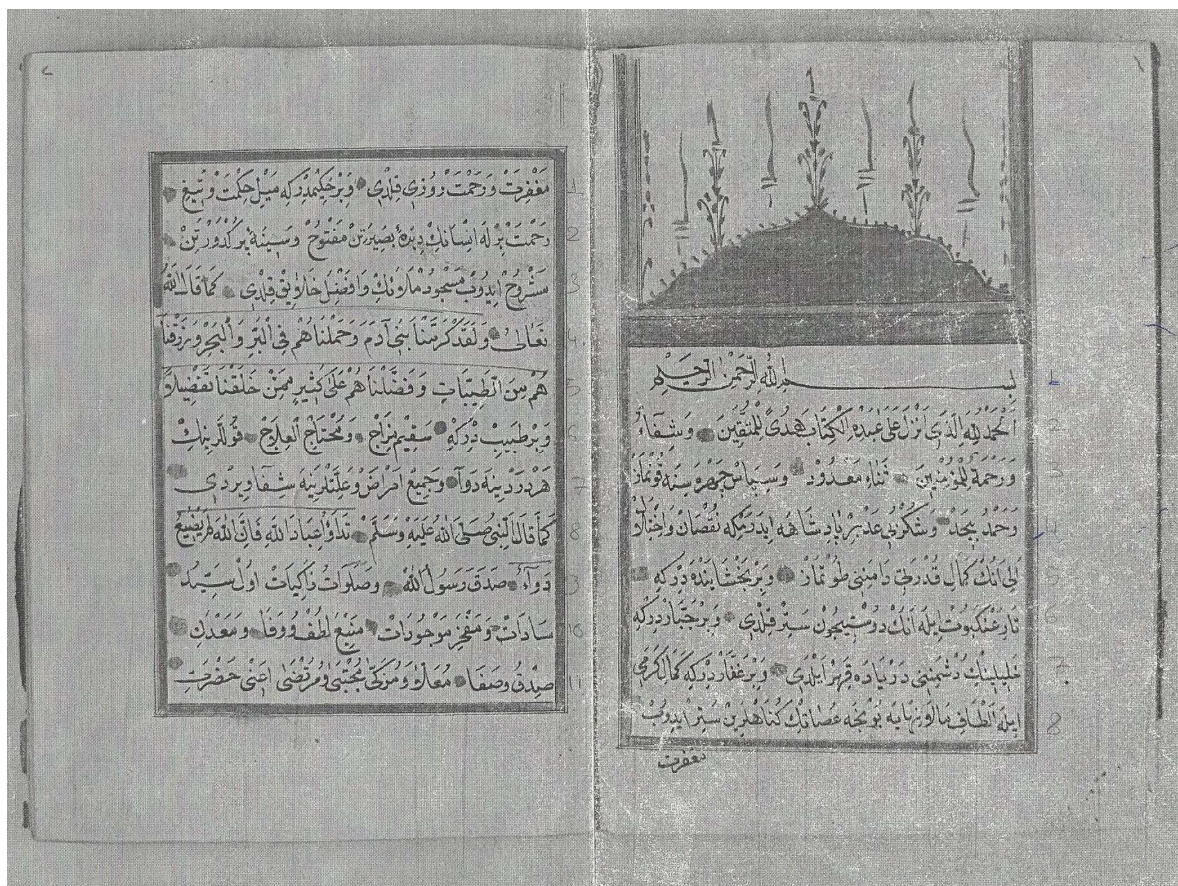 بسم الله الرحمن الرحيم
اَلْحَمْدُ لِلّٰهِ الَّذِى نَزَّلَ عَلَى عَبْدِهِ الْكِتَابَ هُدًى لِلْمُتَّقِينَ وَشِفَاءً
وَرَحْمَةً لِلْمُؤْمِنِينَ ثَنَاءِ مَعْدُودْ وَسِپَاسْ
وَحَمْدِ بِيحَدْ وَشُكْرِ بِى عَدْ بِرْ پَادِشَاهَه اِيدَرِمْكِه نُقْصَانْ وَاخْتِلَالْ
اَنِكْ كَمَالِ قُدْرَتِى دَامَنِنِى طُوتْمَازْ وَبِرْ بَخْشَايَنْدَه دِرْكِه
تَارِ عَنْكَبُوتْ اِيلَه اَنِكْ دُوسْتِيچُونْ سَتِرْ قِلْدِى وَبِرْ جَبَّارْ دِرْكِه
خَلِيلِنِكْ دُشْمَنِنِى دَرْيَادَه قَهِرْ اَيْلَدِى وَبِرْ غَفَّارْ دِرْكِه كَمَالِ كَرَمِى
اِيلَه اَلْطَافِ مَالَا نِهَايَه بُونْجَه عُصَاتِكْ كُنَاهْلَرِينْ سَتِرْ اِيدُوبْ
مغفرت
مَغْفِرَتْ وَرَحْمَتْ رُوزِى قِلْدِى وَبِرْ حَكِيمْدِرْكِه مَيْلِ حِكْمَتْ وَتِيغِ
رَحْمَتْ بِرْلَه اِنْسَانِكْ دِيدَهءِ بَصِيرَتِنْ مَفْتُوحْ وَسِينَهءِ پُرْ كُدُورَتِنْ
مَشْرُوحْ اِيدُوبْ مَسْجُودِ مَلَائِكْ وَاَفْضَلِ خَلَايِقْ قِلْدِى كَمَا قَالَ اللّٰهُ
تَعَالَى وَلَقَدْ كَرَّمْنَا بَنِى آدَمَ وَحَمَلْنَاهُمْ فِى الْبَرِّ وَالْبَحْرِ وَرَزَقْنَا
هُمْ مِنَ الطَّيِّبَاتِ وَفَضَّلْنَاهُمْ عَلَى كَثِيرٍ مِمَّنْ خَلَقْنَا تَفْضِيلًا
وَبِرْ طَبِيبْ دِرْكِه سَقِيمِ مِزَاجْ وَمُحْتَاجِ الْعِلَاجْ قُولْلَرِينِكْ
هَرْ دَرْدِينَه دَوَا وَجَمِيعِ اَمْرَاضْ وَعِلَّتْلَرِينَه شِفَا وِيرْدِى
كَمَا قَالَ النَّبِىُّ صَلَّى اللّٰهُ عَلَيْهِ وَسَلَّمْ تَدَاوَوْا عِبَادَ اللّٰهِ فَاِنَّ اللّٰهَ لَمْ يَضَعْ
دَوَاءٌ صَدَقَ رَسُولُ اللّٰهْ وَصَلَوَاتِ زَاكِيَاتْ اُولْ سَيِّدِ
سَادَاتْ وَمَفْخَرِ مَوْجُودَاتْ مَنْبَعِ لُطْفْ وَوَفَا وَمَعْدَنِ
صِدْقُ وَصَفَا مُعَلَّا وَمُزَكَّى مُجْتَبَى وَمُرْتَضَى اَعْنِى حَضْرَتِ